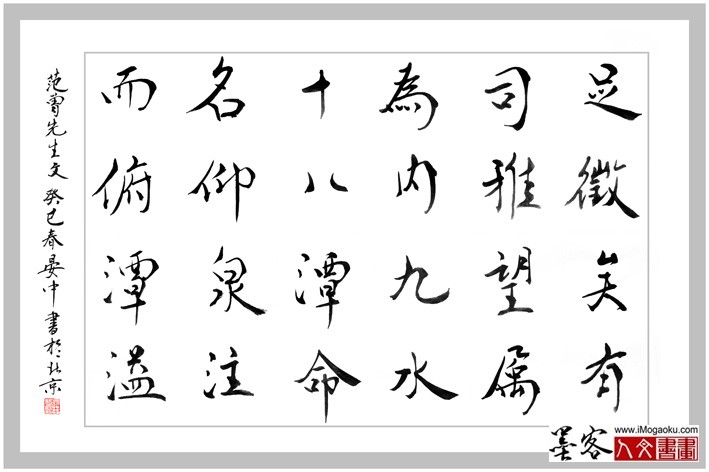 足徵矣有
司雅望属
為内九水
十八潭命
名仰泉注
而俯潭溢
范曾先生文癸巳春晏中書於北京
墨客
www.iMogaoku.com
人文書畫